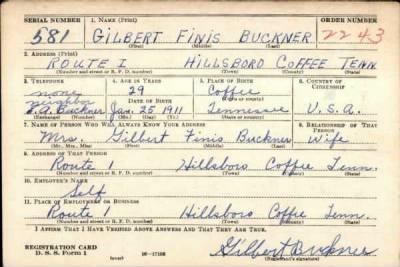 SERIAL NUMBER 1. NAME (Print) ORDER NUMBER
581 GILBERT FINIS BUCKNER 2243
(First) (Middle) (Last)
2. ADDRESS (Print)
ROUTE I HILLSBORO COFFEE TENN
(Number and street or R. F. D. number) (Town) (County) (State)
3. TELEPHONE 4. AGE IN YEARS 5. PLACE OF BIRTH 6. COUNTRY OF CITIZENSHIP
none 29 Coffee
neighbor DATE OF BIRTH (Town or county)
Buckner Jan. 25 1911 Tennessee U.S.A.
(Exchange) (Number) (Mo.) (Day) (Yr.) (State or country)
7. NAME OF PERSON WHO WILL ALWAYS KNOW YOUR ADDRESS 8. RELATIONSHIP OF THAT PERSON
Mrs. Gilbert Finis Buckner Wife
(Mr., Mrs., Miss) (First) (Middle) (Last)
9. ADDRESS OF THAT PERSON
Route 1 Hillsboro Coffee Tenn.
(Number and street or R. F. D. number) (Town) (County) (State)
10. EMPLOYER'S NAME
Self
11. PLACE OF EMPLOYMENT OR BUSINESS
Route 1 Hillsboro Coffee Tenn.
(Number and street or R. F. D. number) (Town) (County) (State)
I AFFIRM THAT I HAVE VERIFIED ABOVE ANSWERS AND THAT THEY ARE TRUE.
REGISTRATION CARD Gilbert Buckner
D. S. S. Form 1 (over) (Registrant's signature)